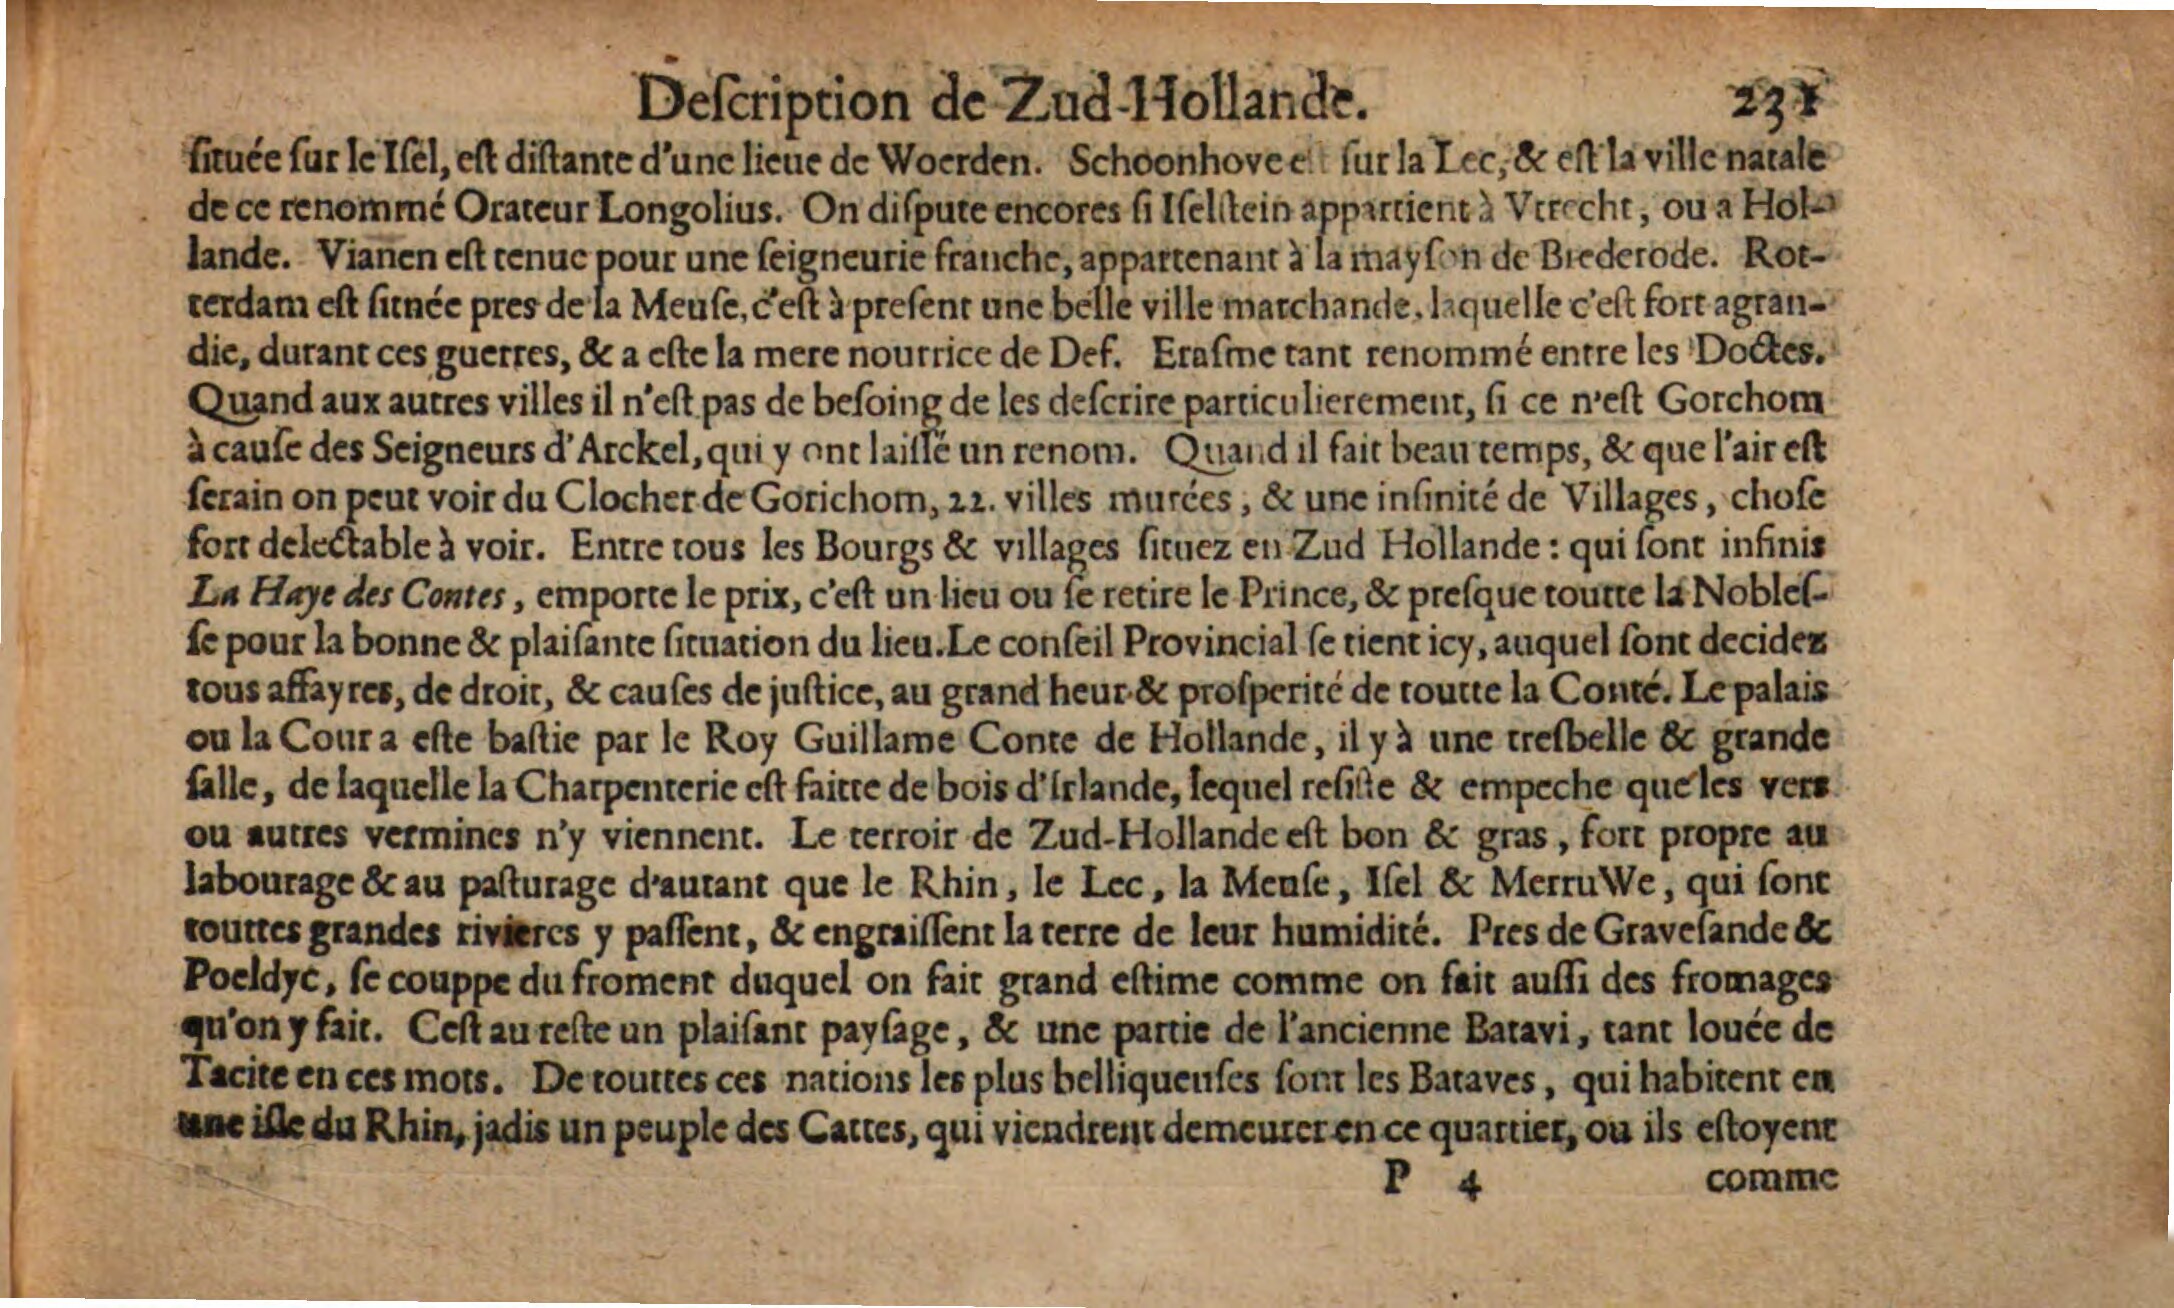 Deſcription de Zud-Hollande. 231
ſituée ſur le Iſel, eſt diſtante d'une lieue de Woerden. Schoonhove eſt ſur la Lec, & eſt la ville natale
de ce renommé Orateur Longolius. On diſpute encores ſi Iſelſtein appartient à Vtrecht, ou a Hol-
lande. Vianen eſt tenue pour une ſeigneurie franche, appartenant à la mayſon de Brederode. Rot-
terdam eſt ſitnée pres de la Meuſe, c'eſt à preſent une belle ville marchande, laquelle c'eſt fort agran-
die, durant ces guerres, & a eſte la mere nourrice de Deſ. Eraſme tant renommé entre les Doctes.
Quand aux autres villes il n'eſt pas de beſoing de les deſcrire particulierement, ſi ce n'eſt Gorchom
à cauſe des Seigneurs d'Arckel, qui y ont laiſſé un renom. Quand il fait beau temps, & que l'air eſt
ſerain on peut voir du Clocher de Gorichom, 22. villes murées, & une infinité de Villages, choſe
fort delectable à voir. Entre tous les Bourgs & villages ſituez en Zud Hollande: qui ſont infinis
La Haye des Contes, emporte le prix, c'eſt un lieu ou ſe retire le Prince, & preſque toutte la Nobleſ-
ſe pour la bonne & plaiſante ſituation du lieu. Le conſeil Provincial ſe tient icy, auquel ſont decidez
tous affayres, de droit, & cauſes de juſtice, au grand heur & proſperité de toutte la Conté. Le palais
ou la Cour a eſte baſtie par le Roy Guillame Conte de Hollande, il y à une treſbelle & grande
ſalle, de laquelle la Charpenterie eſt faitte de bois d'Irlande, lequel reſiſte & empeche que les vers
ou autres vermines n'y viennent. Le terroir de Zud-Hollande eſt bon & gras, fort propre au
labourage & au paſturage d'autant que le Rhin, le Lec, la Meuſe, Iſel & MerruWe, qui ſont
touttes grandes rivieres y paſſent, & engraiſſent la terre de leur humidité. Pres de Graveſande &
Poeldyc, ſe couppe du froment duquel on fait grand eſtime comme on fait auſſi des fromages
qu'on y fait. Ceſt au reſte un plaiſant payſage, & une partie de l'ancienne Batavi, tant louée de
Tacite en ces mots. De touttes ces nations les plus belliqueuſes ſont les Bataves, qui habitent en
une iſle du Rhin, jadis un peuple des Cattes, qui viendrent demeurer en ce quartier, ou ils eſtoyent
P 4 comme